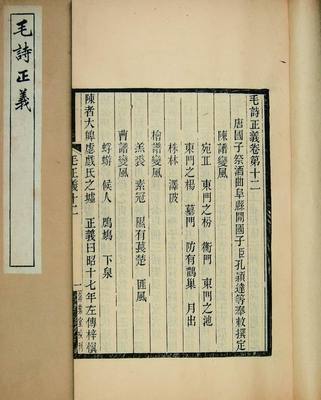 毛詩正義
毛詩正義卷第十二
唐國子祭酒曲阜縣開國子臣孔穎達等奉敕撰定
陳譜變風
宛丘 東門之枌 衡門 東門之池
東門之楊 墓門 防有鵲巢 月出
株林 澤陂
檜譜變風
羔裘 素冠 隰有萇楚 匪風
曹譜變風
蜉蝣 候人 鳲鳩 下泉
陳者大皥虙戲氏之墟 正義曰昭十七年左傳梓愼
毛正義十二
一